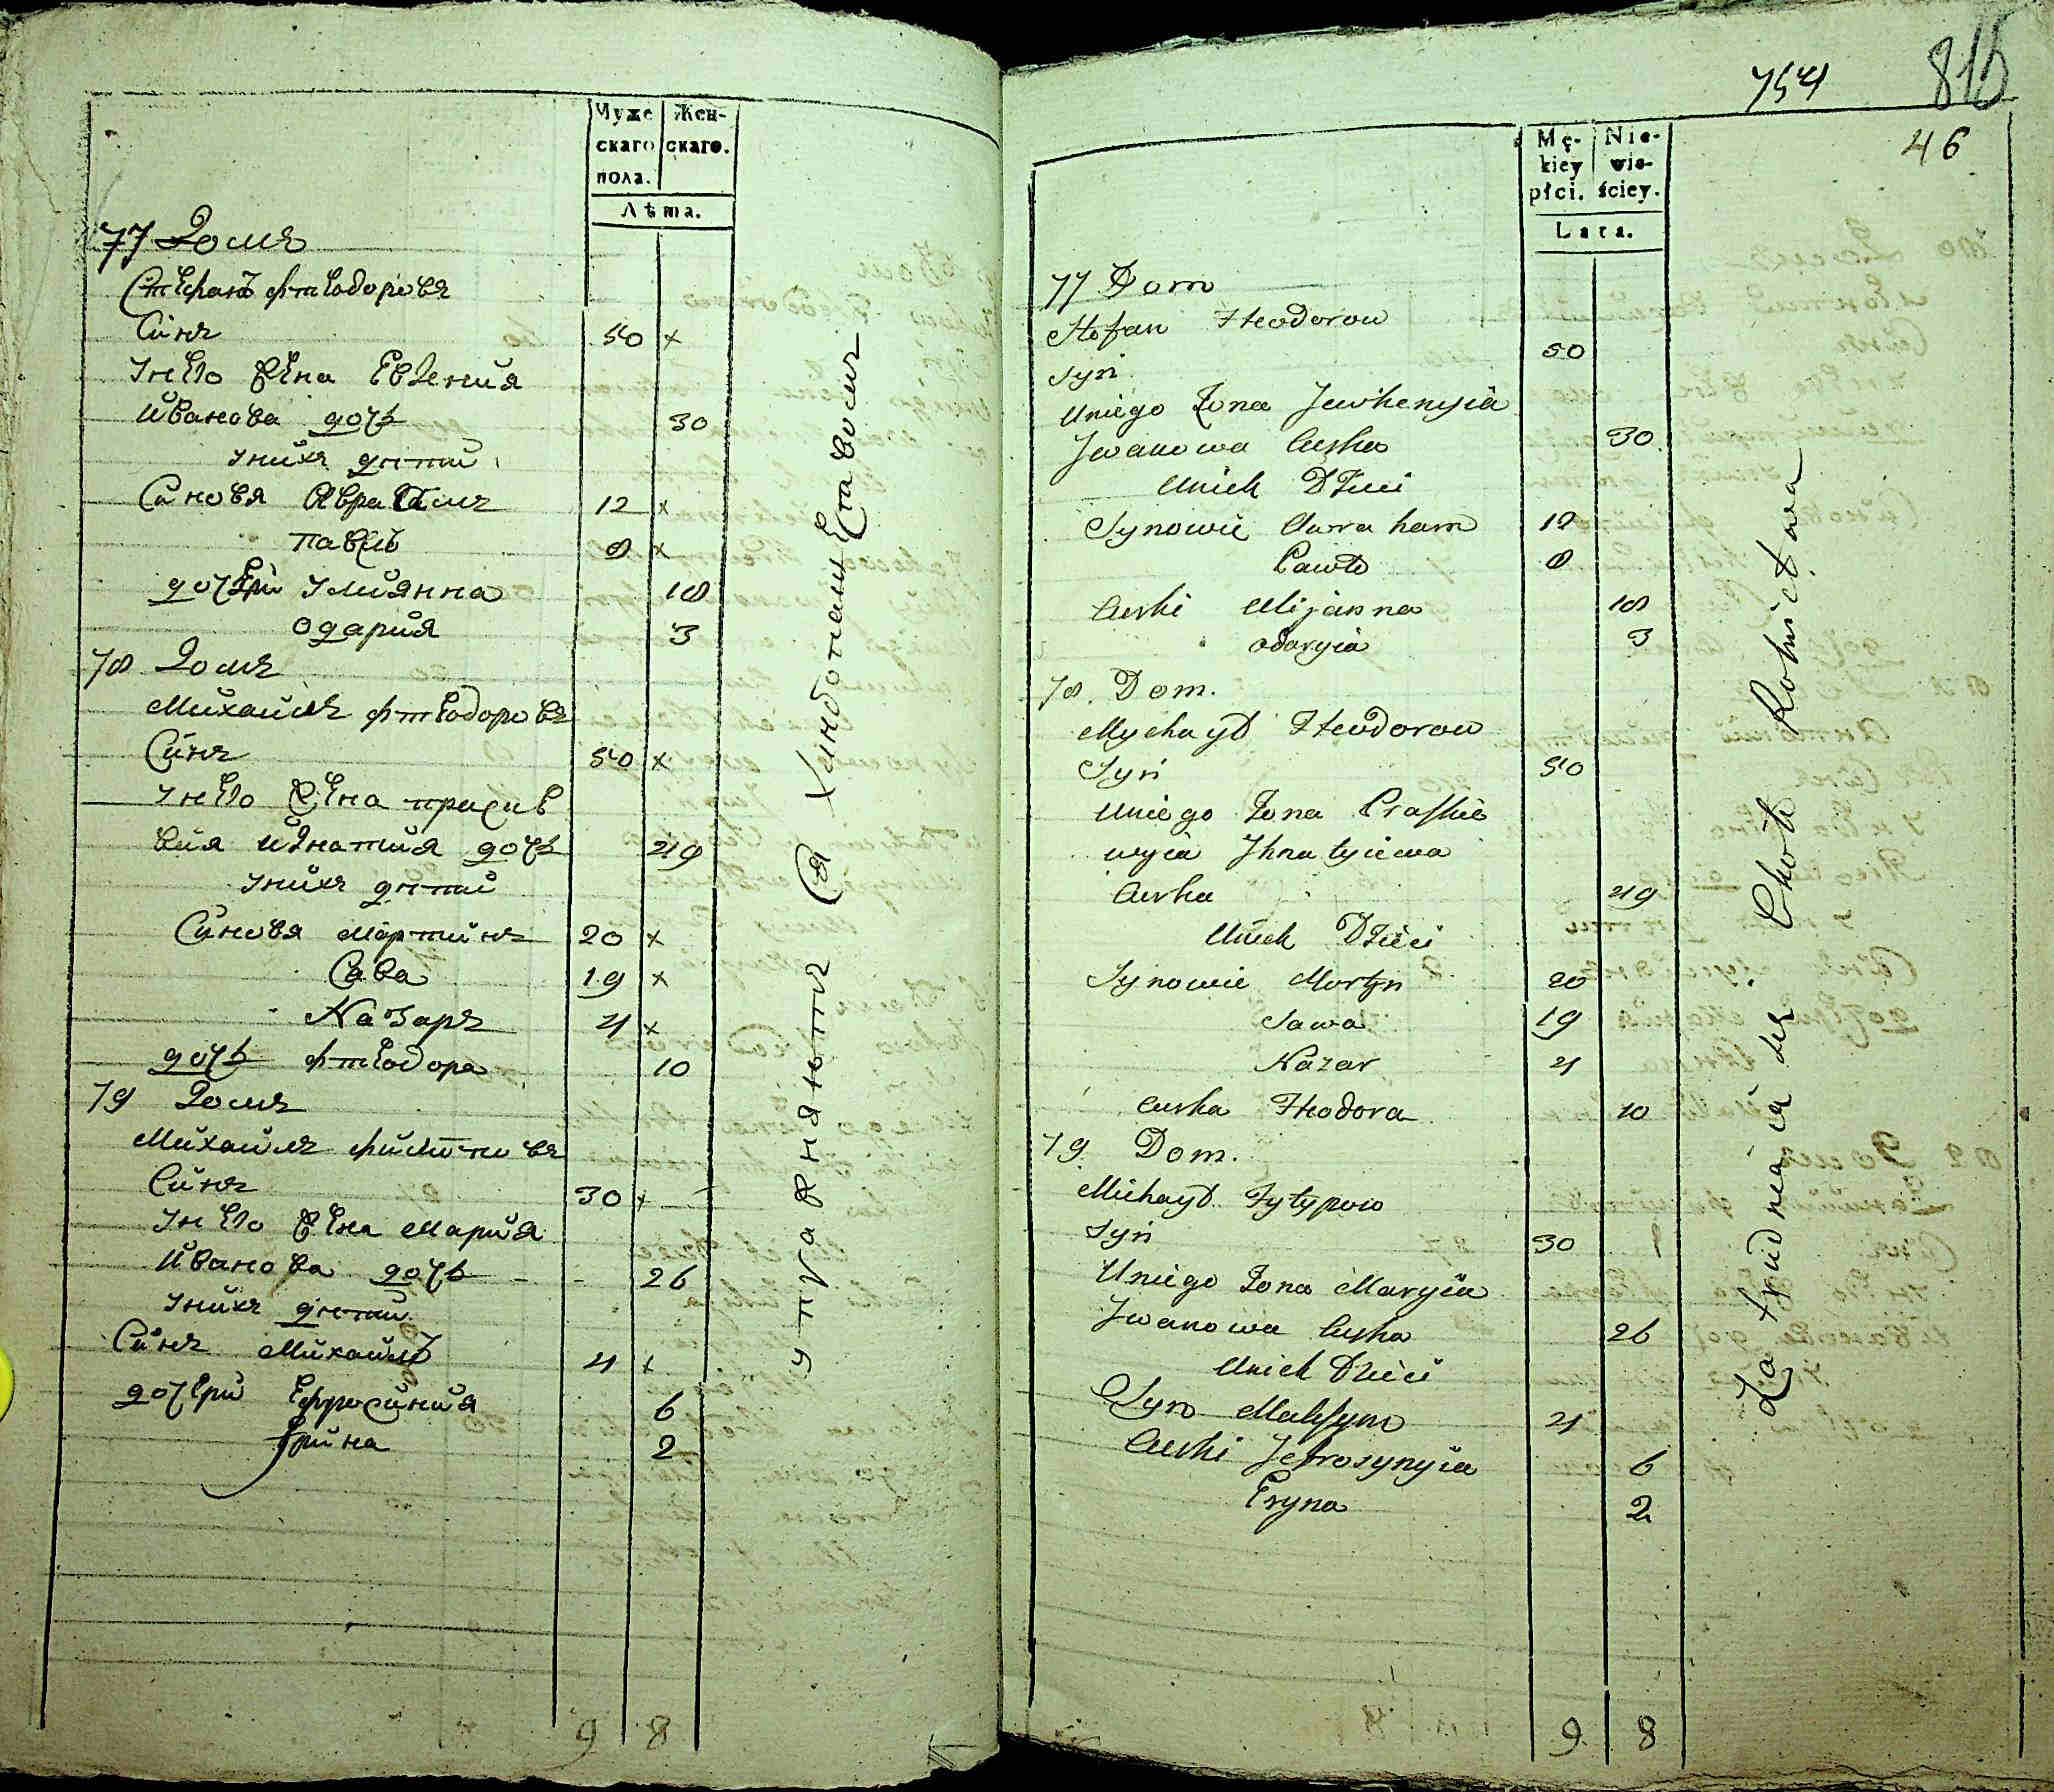 Муже Жен-
скаго скаго.
пола.
Лѣта.
77 Домъ
Стефанъ Фтеодоровъ
Синъ 50 x
Унего Жена Евгения
Иванова дочь 30
Унихъ дѣти
Синовя Аврамъ 12 x
Павелъ 8 x
дочери Улиянна 18
Одария 3
78 Домъ
Михаилъ Фтеодоровъ
Синъ 50 x
Унего Жена Прасив
вия Игнатия дочь 49
Унихъ дѣти
Синовя Мартинъ 20 x
Сава 19 x
Назаръ 4 x
дочь Фтеодора 10
79 Домъ
Михаилъ Филиповъ
Синъ 30 x
Унего Жена Мария
Иванова дочь 26
Унихъ дѣти
Синъ Михаилъ 4 x
дочери Ефросиния 6
Ирина 2
9 8
упражняются Ся Хлѣбопашеставомъ
754 816
46
Mę- Nie-
kiey wie-
płci. ściey.
Lata.
77 Dom
Stefan Fteodorow
Syn 50
Uniego Żona Jewhenyia
Jwanowa Curka 30
Unich Dzieci
Synowie Awraham 12
Pawło 8
Curki Ulijanna 18
Odaryia 3
78. Dom.
Mychayło Fteodorow
Syn 50
Uniego Żona Praskie
wyia Jhnatyiewa
Curka 49
Unich Dzieci
Synowie Martyn 20
Sawa 19
Nazar 4
Curka Fteodora 10
79. Dom.
Michayło Fylypow
Syn 30
Uniego Żona Maryia
Jwanowa Curka 26
Unich Dzieci
Syn Maksym 4
Curki Jefrosynyia 6
Eryna 2
9 8
Zatrudniaia się Chotą Rolnictwa